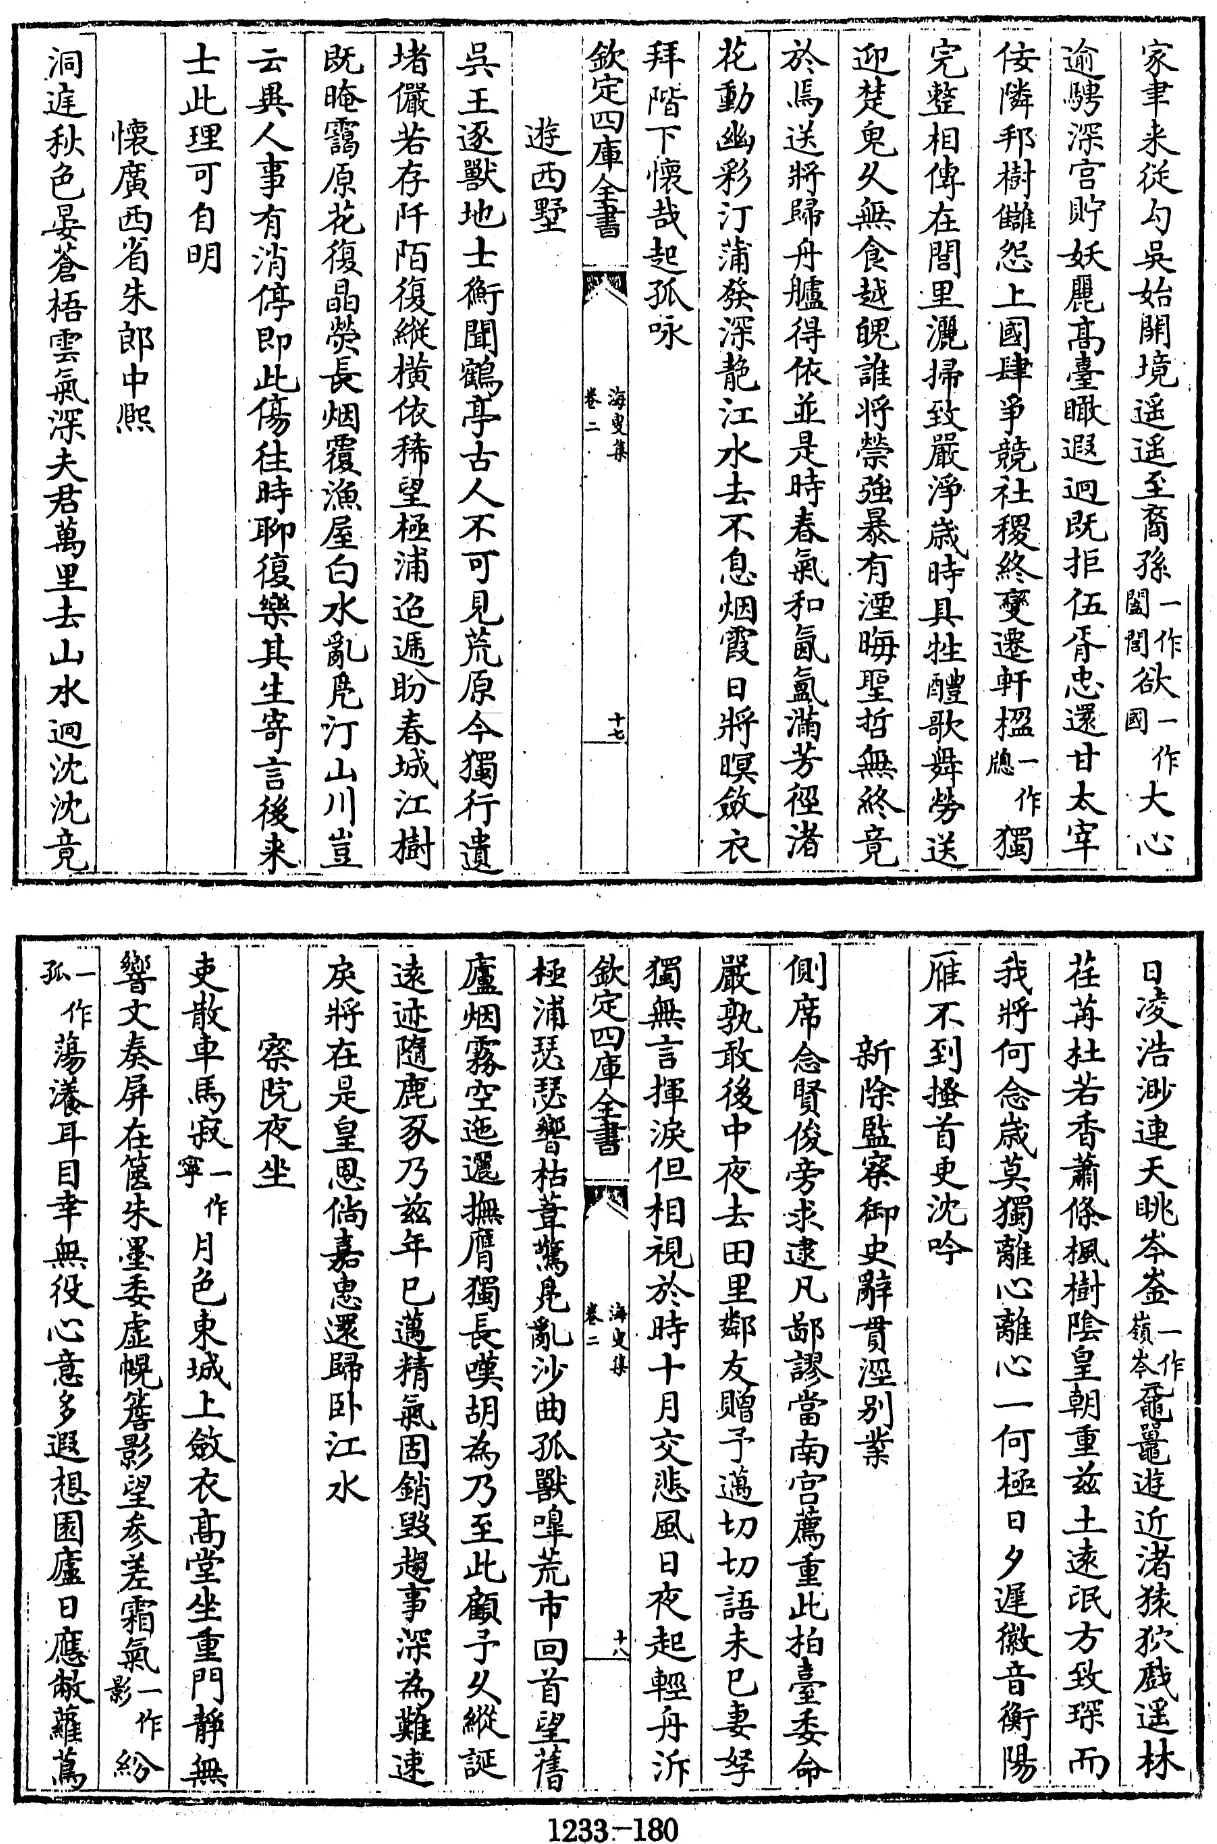 家聿来從勾吳始開境遥遥至裔孫一作闔閭欲一作國大心
逾騁深宫貯妖麗髙臺瞰遐迥既拒伍胥忠還甘太宰
佞隣邦樹讎怨上國肆爭競社稷終變遷軒楹一作牕獨
完整相傳在閭里灑掃致嚴淨歳時具牲醴歌舞勞送
迎楚鬼乆無食越魄誰將禜強暴有湮晦聖哲無終竟
於焉送將歸舟艫得依並是時春氣和氤氲滿芳徑渚
花動幽彩汀蒲發深靘江水去不息烟霞日將暝斂衣
拜階下懷哉起孤咏
欽定四庫全書
海叟集
卷二
十七
遊西墅
吳王逐獸地士衡聞鶴亭古人不可見荒原今獨行遺
堵儼若存阡陌復縱横依稀望極浦迢遞盼春城江樹
既晻靄原花復晶熒長烟覆漁屋白水亂凫汀山川豈
云異人事有消停即此傷往時聊復樂其生寄言後来
士此理可自明
懷廣西省朱郎中熈
洞庭秋色晏蒼梧雲氣深夫君萬里去山水迥沈沈竟
日凌浩渺連天眺岑崟一作嶺岑黿鼉遊近渚猿狖戲遥林
荏苒杜若香蕭條楓樹陰皇朝重兹土逺氓方致琛而
我將何念歳莫獨離心離心一何極日夕遲徽音衡陽
雁不到搔首更沈吟
新除監察御史辭貫涇别業
側席念賢俊旁求逮凡鄙謬當南宫薦重此柏臺委命
嚴孰敢後中夜去田里鄰友贈予邁切切語未已妻孥
獨無言揮淚但相視於時十月交悲風日夜起輕舟泝
欽定四庫全書
海叟集
卷二
十八
極浦瑟瑟響枯葦驚凫亂沙曲孤獸嘷荒市回首望舊
廬烟霧空迤邐撫膺獨長嘆胡為乃至此顧予乆縱誕
逺迹隨鹿豕乃兹年已邁精氣固銷毁趨事深為難速
戾將在是皇恩倘嘉惠還歸卧江水
察院夜坐
吏散車馬寂一作寧月色東城上斂衣髙堂坐重門靜無
響文奏屏在篋朱墨委虚幌簷影望参差霜氣一作影紛
一作孤蕩漾耳目幸無役心意多遐想園廬日應敝蘿蔦
1233-180